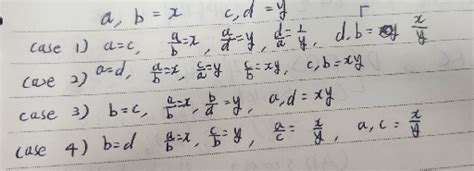 a, b = x   c, d = y   Γ
case 1) a=c, a/b=x, a/d=y, d/a=1/y, d, b = x/y
case 2) a=d, a/b=x, c/a=y, c/b=xy, c, b=xy
case 3) b=c, a/b=x, b/d=y, a, d = xy
case 4) b=d a/b=x, c/b=y, a/c = x/y, a, c = x/y